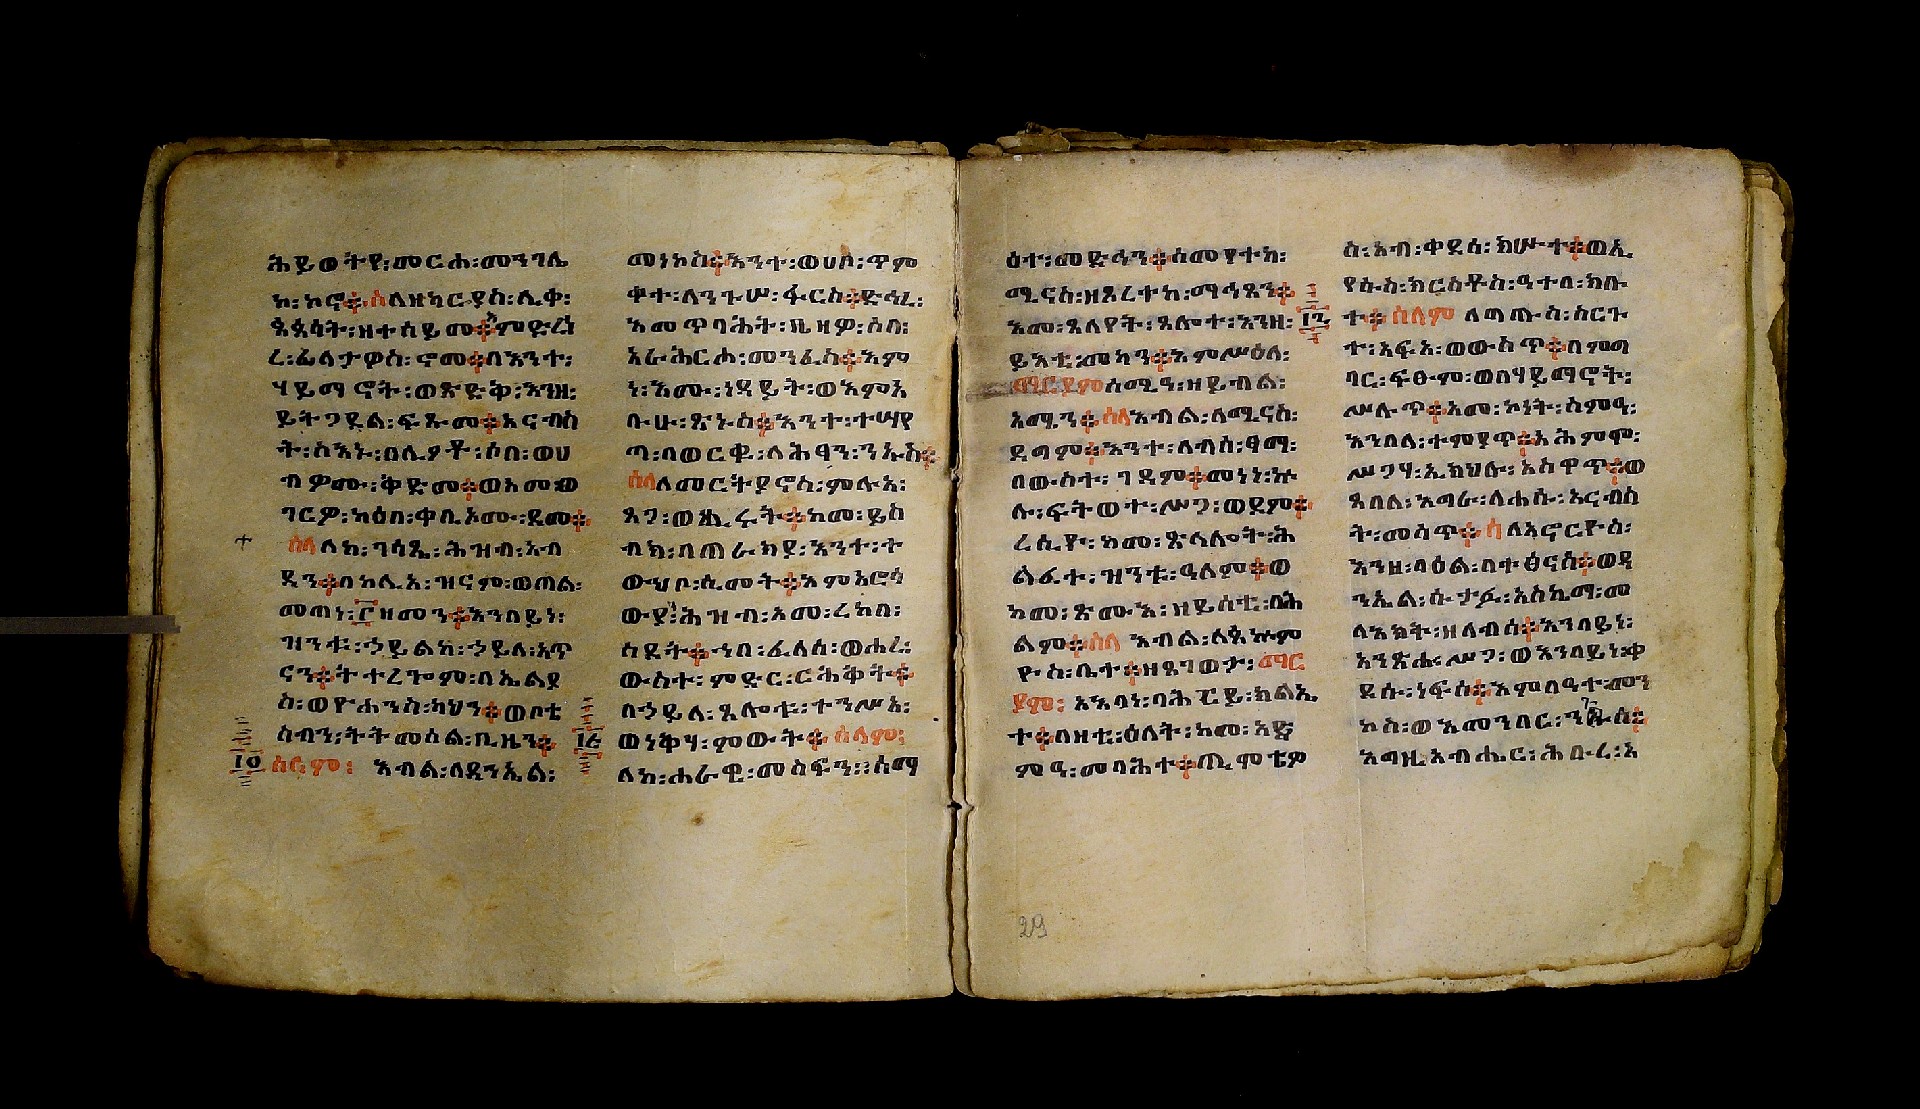 ሕይወትየ፡መርሐ፡መንገሌ
ከ፡ኮኖ፨ሰላለዘካርያስ፡ሊቀ፡
ጳጳሳት፡ዘተሰይመ፨ምድረ
ረ፡ፊልታዎስ፡ኖመ፨በእንተ፡
ሃይማኖት፡ወጽድቅ፡እንዘ፡
ይትጋደል፡ፍጹመ፨አርብዐ
ት፡ስእኑ፡በሊዎቶ፡ሶበ፡ወሀ
ብዎሙ፡ቅድመ፨ወእመወ
ገርዎ፡ካዕበ፡ቀቢኦሙ፡ደመ፨
ሰላለከ፡ገሳጼ፡ሕዝብ፡አብ
ደን፨በከሊአ፡ዝናም፡ወጠል፡
መጠነ፡፫ዘመን፨እንበይነ፡
ዝንቱ፡ኃይልከ፡ኃይለ፡አጥ
ናን፨ትተረጐም፡በኤልያ
ስ፡ወዮሐንስ፡ካህን፨ወቦቲ
ስብን፡ትትመሰል፡ቢዜን፨
፲፬ ሰላም፡ እብል፡ለዳንኤል፡
መነኮስ፨እንተ፡ወሀቦ፡ጥም
ቀተ፡ለንጉሠ፡ፋርስ፨ድኅረ፡
እመጥባሕት፡ቤዘዎ፡ሶበ፡
አራሕርሐ፡መንፈስ፨እም
ነ፡እሙ፡ነዳይት፡ወእምአ
ቡሁ፡ጽኑስ፨እንተ፡ተሣየ
ጣ፡ባወርቁ፡ለሕፃን፡ንኡስ፨
ሰላለመርትያኖስ፡ምሉአ፡
ጸጋ፡ወጼሩት፨ከመ፡ይስ
ብክ፡በጠራክያ፡እንተ፡ተ
ውህቦ፡ሲመት፨እምአሮሳ
ውያ፡ሕዝብ፡አመ፡ረከበ፡
ስደት፨ኀበ፡ፈለሰ፡ወሐረ፡
ውስተ፡ምድር፡ርሕቅት፨
በኃይለ፡ጸሎቱ፡ተንሥአ፡
፲፭ ወነቅሃ፡ምውት፨ ሰላም፡
ለከ፡ሐራዊ፡መስፍን፡፡ሰማ
ዕተ፡መድኅን፨ስመየተከ፡
ሚናስ፡ዘጸረተከ፡ማኅጸን፨
እመ፡ጸለየት፡ጸሎተ፡እንዘ፡
ይእቲ፡መካን፨እምሥዕለ፡
ማርያምሰሚዓ፡ዘይብል፡
አሚን፨ሰላእብል፡ለሚናስ፡
ደጋም፨እንተ፡ለብሰ፡ፃማ፡
በውስተ፡ገዳም፨መነነ፡ኵ
ሉ፡ፍትወተ፡ሥጋ፡ወደም፨
ረሲዮ፡ከመ፡ጽላሎት፡ሕ
ልፈተ፡ዝንቱ፡ዓለም፨ወ
ከመ፡ጽሙእ፡ዘይሰቲ፡በሕ
ልም፨ሰላ እብል፡ለጳኵም
ዮስ፡ቤተ፨ዘጸገወታ፡ማር
ያም፡ አእባነ፡ባሕርይ፡ክልኤ
ተ፨በዘቲ፡ዕለት፡ከመ፡አጽ
ምዓ፡መባሕተ፨ጢሞቴዎ
ስ፡አብ፡ቀደሰ፡ክሡተ፨ወኢ
የሱስ፡ክርስቶስ፡ዓተበ፡ክቡ
፲፮ ተ፨ ሰላም ለጣጡስ፡ስርጉ
ተ፡አፍአ፡ወውስጥ፨በምግ
ባር፡ፍፁም፡ወበሃይማኖት፡
ሥሉጥ፨አመ፡ኮነት፡ስምዓ፡
እንበለ፡ተምያጥ፨አሕምሞ፡
ሥጋሃ፡ኢክህሉ፡አስዋጥ፨ወ
ጸበለ፡እግራ፡ለሐሱ፡አርብዐ
ት፡መሳጥ፨ሰላለአኖርዮስ፡
እንዘ፡በዕል፡በተፅናስ፨ወዳ
ንኤል፡ሱታፌ፡አስኬማ፡መ
ላእክት፡ዘለብሰ፨እንበይነ፡
አንጽሐ፡ሥጋ፡ወእንበይነ፡ቀ
ድሱ፡ነፍስ፨እምበዓተ፡መን
ኮስ፡ወእመንበር፡ንጉሥ፨
እግዚአብሔር፡ሕቡረ፡አ
29